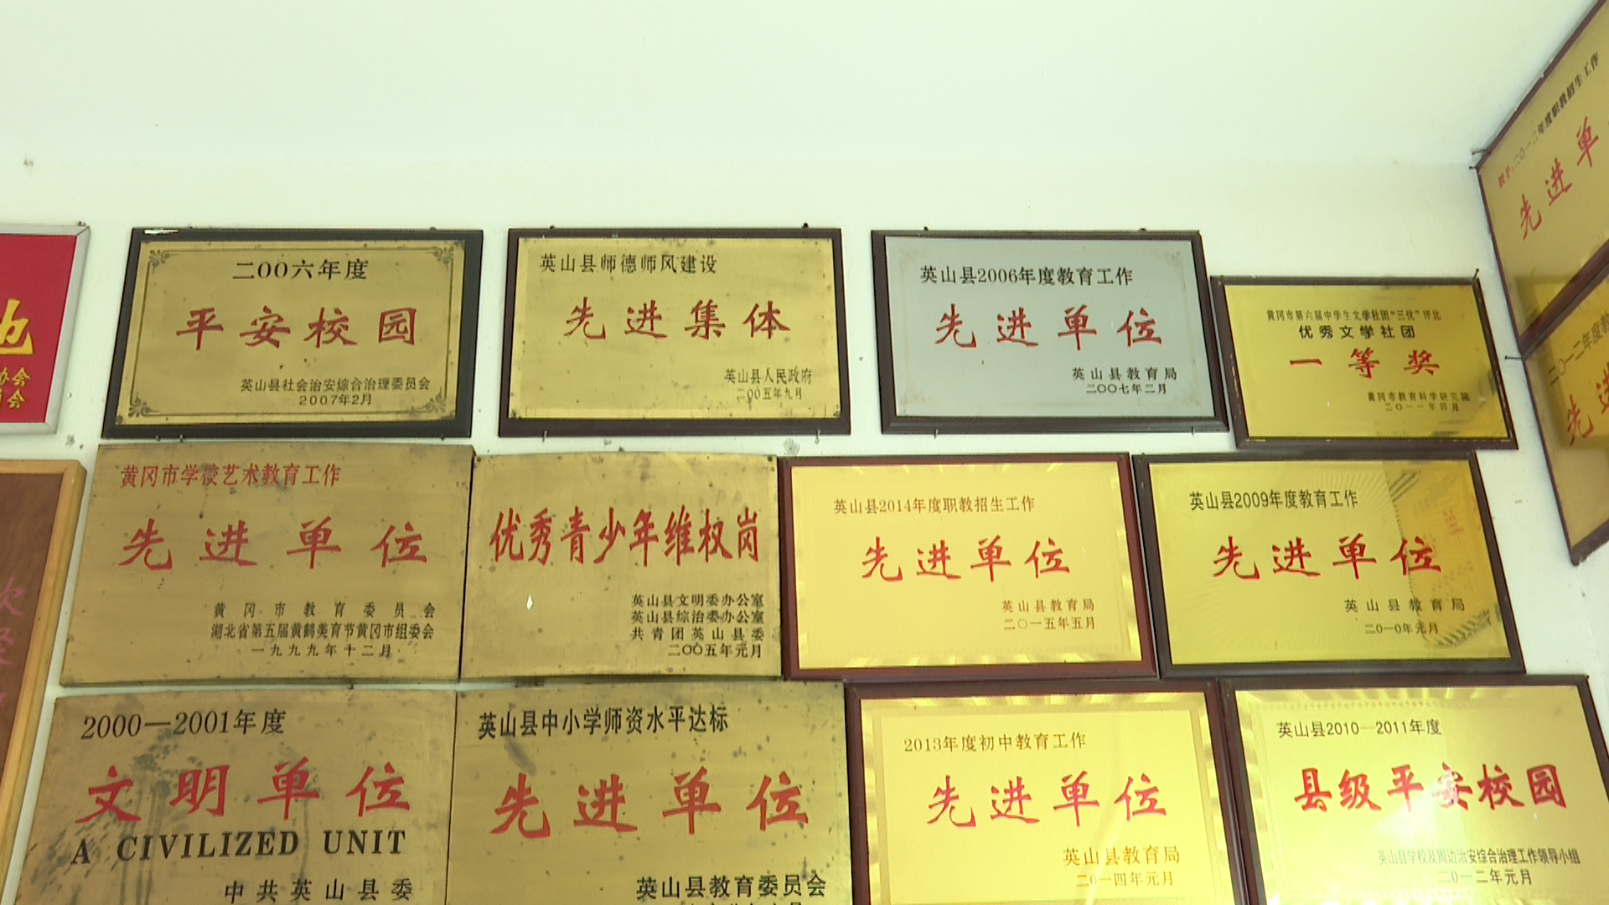 二00六年度
平安校园
英山县社会治安综合治理委员会
2007年2月
英山县师德师风建设
先进集体
英山县人民政府
二00五年九月
英山县2006年度教育工作
先进单位
英山县教育局
二〇〇七年二月
黄冈市第六届中学生文学社团“三优”评比
优秀文学社团
一等奖
黄冈市教育科学研究院
二〇一一年四月
先进单
先进
黄冈市学校艺术教育工作
先进单位
黄冈市教育委员会
湖北省第五届黄鹤美育节黄冈市组委会
一九九九年十二月
优秀青少年维权岗
英山县文明委办公室
英山县综治委办公室
共青团英山县委
二00五年元月
英山县2014年度职教招生工作
先进单位
英山县教育局
二〇一五年五月
英山县2009年度教育工作
先进单位
英山县教育局
二0一0年元月
2000—2001年度
文明单位
A CIVILIZED UNIT
中共英山县委
英山县中小学师资水平达标
先进单位
英山县教育委员会
2013年度初中教育工作
先进单位
英山县教育局
二〇一四年元月
英山县2010—2011年度
县级平安校园
英山县学校及周边治安综合治理工作领导小组
二〇一二年元月